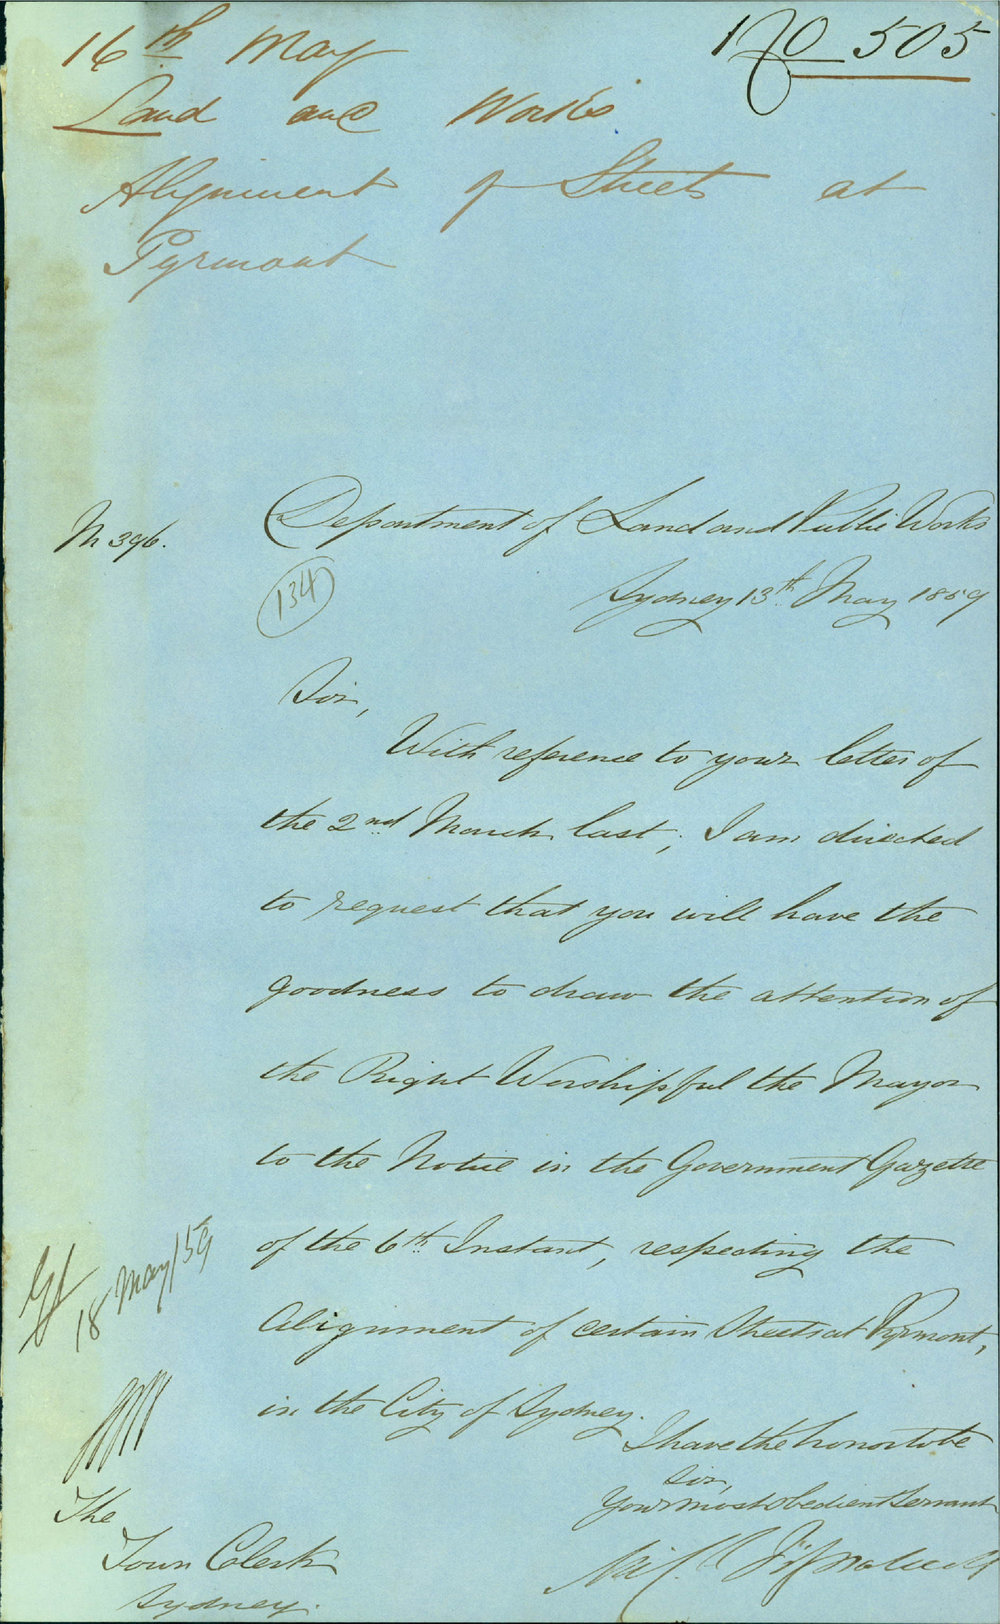 16th May
No 505
Land and Works
Alignment of Streets at
Pyrmont
M 396.
Department of Land and Public Works
134
Sydney 13th May 1859
Sir,
With reference to your letter of
the 2nd March last, I am directed
to request that you will have the
goodness to draw the attention of
the Right Worshipful the Mayor
to the Notice in the Government Gazette
of the 6th Instant, respecting the
Alignment of certain Streets at Pyrmont,
in the City of Sydney.
18 May/59
I have the honor to be
Sir,
Your most obedient Servant
The
Town Clerk
Sydney.